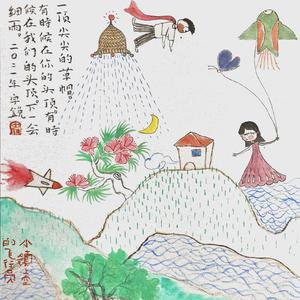 一顶尖尖的草帽。
有时候在你的头顶。有时
候在我们的头顶。下一会
细雨。二〇二一年
小镇上
的飞行员